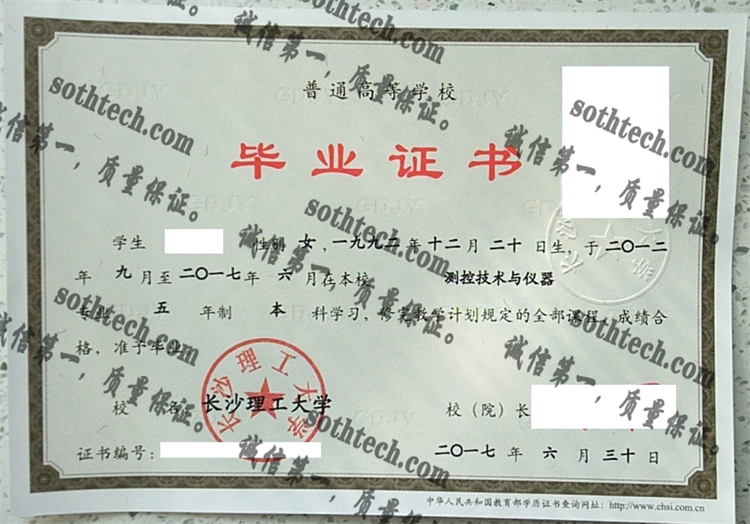 普通高等学校
毕业证书
学生 性别 女,一九九二年十二月二十日生,于二〇一二
年九月至二〇一七年六月在本校 测控技术与仪器
专业 五 年制 本 科学习,修完教学计划规定的全部课程,成绩合
格,准予毕业。
校 名: 长沙理工大学
校(院)长
证书编号:
二〇一七年六月三十日
中华人民共和国教育部学历证书查询网址:http://www.chsi.com.cn
长沙理工大学
sothtech.com
诚信第一,质量保证。
sothtech.com
诚信第一,质量保证。
sothtech.com
诚信第一,质量保证。
sothtech.com
诚信第一,质量保证。
sothtech.com
诚信第一,质量保证。
sothtech.com
诚信第一,质量保证。
sothtech.com
诚信第一,质量保证。